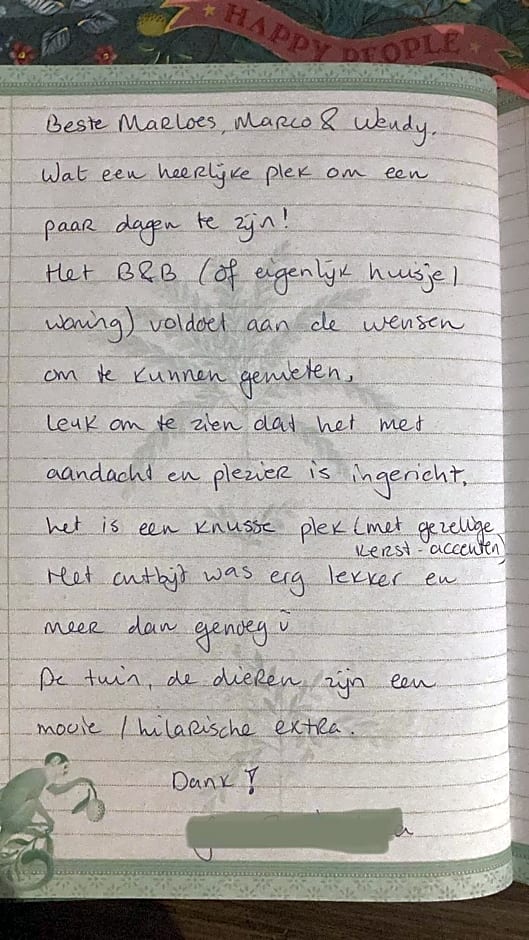 HAPPY PEOPLE
Beste Marloes, Marco & Wendy.
Wat een heerlijke plek om een
paar dagen te zijn!
Het B&B (of eigenlijk huisje/
woning) voldoet aan de wensen
om te kunnen genieten,
Leuk om te zien dat het met
aandacht en plezier is ingericht,
het is een knusse plek (met gezellige
kerst-accenten)
Het ontbijt was erg lekker en
meer dan genoeg ü
De tuin, de dieren zijn een
mooie / hilarische extra.
Dank!